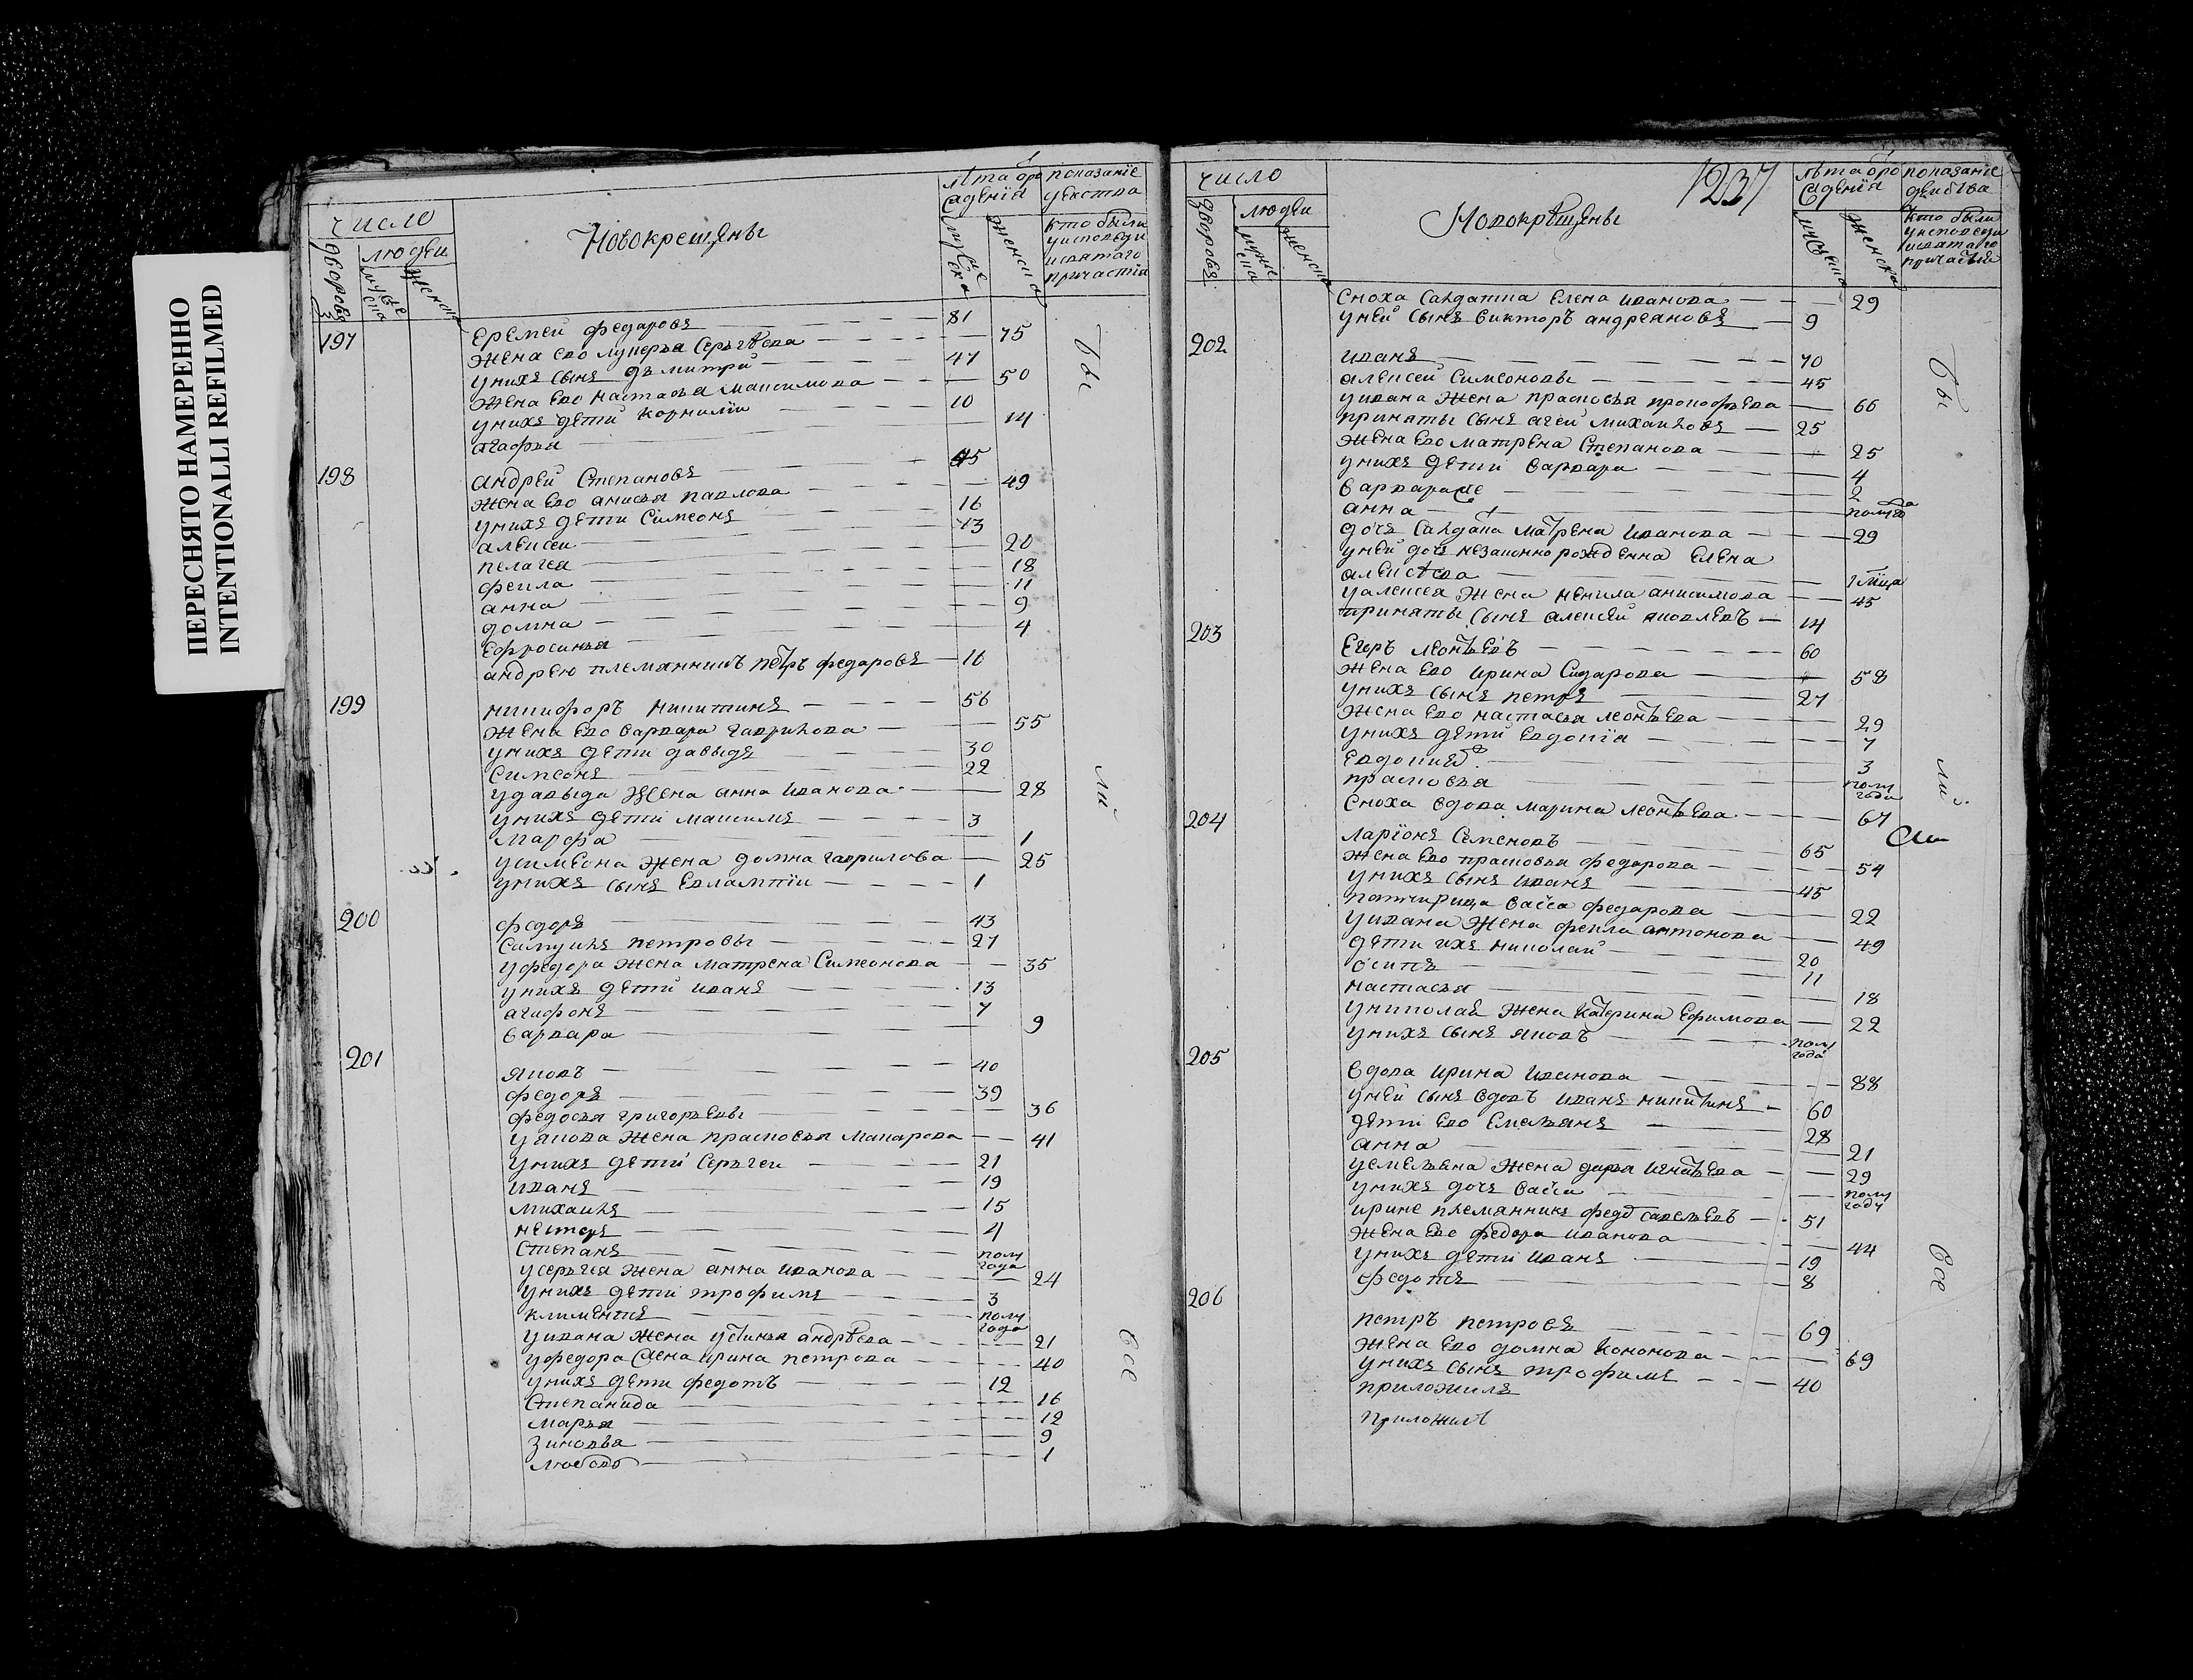 ПЕРЕСНЯТО НАМЕРЕННО
INTENTIONALLI REFILMED
число
дворовъ
людеи
мужеска
женска
Новокрещены
лѣта
показанїе
кто были
у исповеди
и святаго
причастїя
197
еремеи федаровъ 81
жена ево лукерья серьгѣева 75
у нихъ сынъ дьмитри 47
жена ево настасья максимова 50
у нихъ дети корнили 10
агафья 14
198
андреи степановъ 45
жена ево анисья павлова 49
у нихъ дети симеонъ 16
алексеи 13
пелагея 20
фекла 18
анна 11
домна 9
ефросинья 4
андрею племянникъ петръ федаровъ 16
199
никифоръ никитинъ 56
жена ево варвара гаврилова 55
у нихъ дети давыдъ 30
симеонъ 22
у давыда жена анна иванова 28
у нихъ дети максимъ 3
марфа 1
у симеона жена домна гаврилова 25
у нихъ сынъ евлампїи 1
200
федоръ 43
самуилъ петровы 27
у федора жена матрена симеонова 35
у нихъ дети иванъ 13
агафонъ 7
варвара 9
201
яковъ 40
федоръ 39
федосья григорьевы 36
у якова жена прасковья макарова 41
у нихъ дети серьгеи 21
иванъ 19
михаилъ 15
несторъ 4
степанъ полу года
у серьгея жена анна иванова 24
у нихъ дети трофимъ 3
климентъ полу года
у ивана жена устинья андрѣева 21
у федора жена ирина петрова 40
у нихъ дети федотъ 12
степанида 16
марья 12
зиновья 9
любовь 1
Бы
ли
все
число
дворовъ
людеи
мужеска
женска
Новокрѣщены
1237
лѣта
показанїе
действа
кто были
у исповеди
и святаго
причастїя
сноха салдатка елена иванова 29
у неи сынъ викторъ андреяновъ 9
202
иванъ 70
алексеи симеоновы 45
у ивана жена прасковья прокофьева 66
приматы сынъ агеи михаиловъ 25
жена ево матрена степанова 25
у нихъ дети варвара 4
варвара же 2
анна полу года
дочь салдатка матрена иванова 29
у неи дочь незаконно рожденна елена
алексѣева 1 мїца
у алексея жена ненила анисимова 45
приматы сынъ алексеи яковлевъ 14
203
егоръ леонтьевъ 60
жена ево ирина сидарова 58
у нихъ сынъ петръ 27
жена ево настасья леонтьева 29
у нихъ дети евдокїа 7
евдокия 3
прасковья полу года
сноха вдова марина леонтьева 67
204
ларїонъ семеновъ 65
жена ево прасковья федарова 54
у нихъ сынъ иванъ 45
васса федарова 22
у ивана жена фекла антонова 49
дети ихъ николаи 20
осипъ 11
настасья 18
у николая жена катерина ефимова 22
у нихъ сынъ яковъ полу года
205
вдова ирина иванова 88
у неи сынъ вдовъ иванъ никитинъ 60
дети ево емельянъ 28
анна 21
у емельяна жена дарья игнатьева 29
у нихъ дочь васса полу году
ирине племянникъ федотъ савельевъ 51
жена ево федора иванова 44
у нихъ дети иванъ 19
федотъ 8
206
петръ петровъ 69
жена ево домна кононова 69
у нихъ сынъ трофимъ 40
приложилъ
приложилъ
Бы
ли
все